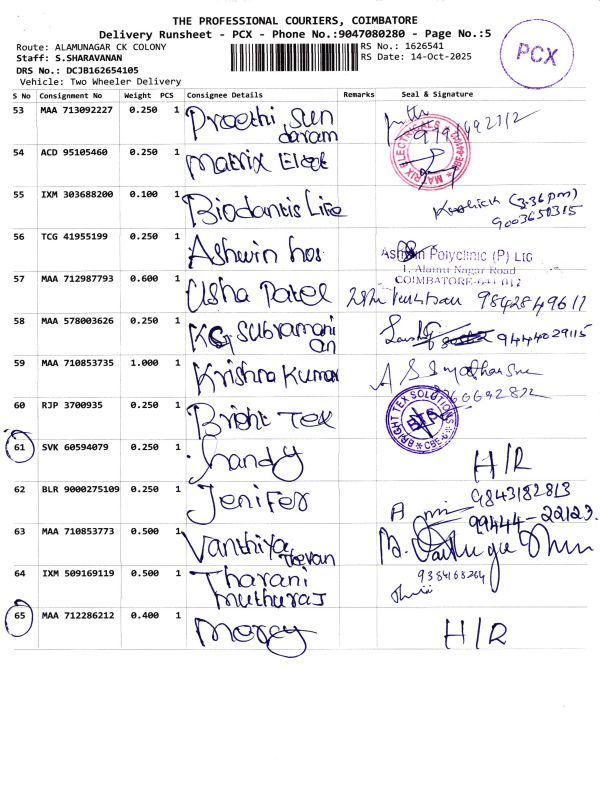 THE PROFESSIONAL COURIERS, COIMBATORE
Delivery Runsheet - PCX - Phone No.:9047080280 - Page No.:5
Route: ALAMUNAGAR CK COLONY
RS No.: 1626541
Staff: S.SHARAVANAN
RS Date: 14-Oct-2025
DRS No.: DCJB162654105
Vehicle: Two Wheeler Delivery
PCX
S No Consignment No Weight PCS Consignee Details Remarks Seal & Signature
53 MAA 713092227 0.250 1 Preethi Sun
daram
54 ACD 95105460 0.250 1 Matrix Elect
MATRIX ELECTRICALS
55 IXM 303688200 0.100 1 Biodantis Life (3.36 pm)
9003650315
56 TCG 41955199 0.250 1 Ashwin hos
Ashwin Polyclinic (P) Ltd
1, Alamu Nagar Road
COIMBATORE-641 012
57 MAA 712987793 0.600 1 Usha Patel 9842849611
58 MAA 578003626 0.250 1 KG Subramani
an
9444029115
59 MAA 710853735 1.000 1 Krishna Kumar
60 RJP 3700935 0.250 1 Bright Tex
BRIGHT TEX SOLUTIONS
BTS
61 SVK 60594079 0.250 1 Shandy H/R
62 BLR 9000275109 0.250 1 Jenifer 9843182813
99444-22123
63 MAA 710853773 0.500 1 Vanthiya
Thevan
64 IXM 509169119 0.500 1 Tharani
muthuraj
9384168264
65 MAA 712286212 0.400 1 Morey H/R